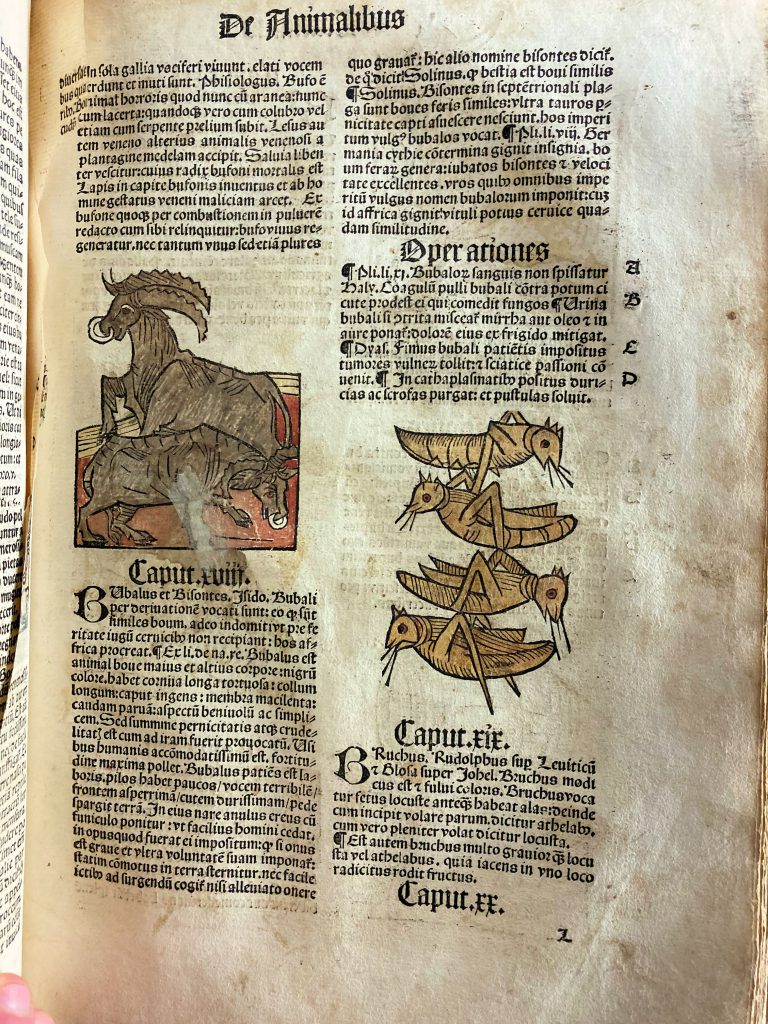 De Animalibus
In sola gallia vociferi viuunt. elati vocem
perdunt et muti sunt. Phisiologus. Bufo ē
animat horroris quod nunc cū aranea: nunc
cum lacerta: quandoqꝫ vero cum colubro vel
etiam cum serpente prelium subit. Lesus au
tem veneno alterius animalis venenosi a
plantagine medelam accipit. Saluia liben
ter vescitur: cuius radix bufoni mortalis est
Lapis in capite bufonis inuentus et ab ho
mine gestatus veneni maliciam arcet. Ex
bufone quoqꝫ per combustionem in puluerē
redacto cum sibi relinquitur: bufo viuus re-
generatur. nec tantum vnus sed etiā plures
Caput.xviij.
BUbalus et Bisontes. Isido. Bubali
per deriuationē vocati sunt: eo qꝫ sint
similes boum. adeo indomiti vt pre fe
ritate iugū ceruicibꝫ non recipiant: hos af-
frica procreat. ¶ Ex li. de na. re. Bubalus est
animal boue maius et altius corpore: nigrū
colore. habet cornua longa tortuosa: collum
longum: caput ingens: membra macilenta:
caudam paruā: aspectū beniuolū ac simpli-
cem. Sed summe pernicitatis atqꝫ crude-
litatꝭ est cum ad iram fuerit prouocatū. Usi
bus humanis accōmodatissimū est. fortitu-
dine maxima pollet. Bubalus patiēs est la-
boris. pilos habet paucos / vocem terribilē /
frontem asperrimā / cutem durissimam / pede
spargit terrā. In eius nare anulus ereus cū
funiculo ponitur: vt facilius homini cedat.
in opus quod fuerat ei impositum: qꝫ si onus
est graue et vltra voluntatē suam imponat̄:
statim cōmotus in terra sternitur. nec facile
ictibꝫ ad surgendū cogit̄ nisi alleuiato onere
quo grauat̄: hic alio nomine bisontes dicit̄.
de qͦ dicit Solinus. qꝫ bestia est boui similis
¶ Solinus. Bisontes in septētrionali pla-
ga sunt boues feris similes: vltra tauros ꝑ-
nicitate capti asuescere nesciunt. hos imperi
tum vulgꝰ bubalos vocat. ¶ Pli. li. viij. Ger
mania cythie cōtermina gignit insignia. bo
um ferarꝝ genera: iubatos bisontes ⁊ veloci
tate excellentes. vros quibꝫ omnibus impe
ritū vulgus nomen bubalorum imponit: cuꝫ
id affrica gignit vituli potius ceruice qua-
dam similitudine.
Operationes
¶ Pli. li. xj. Bubaloꝝ sanguis non spissatur
A
Haly. Coagulū pulli bubali cōtra potum ci
cute prodest et ei qui comedit fungos ¶ Urina
B
bubali si ꝯtrita misceat̄ mirrha aut oleo ⁊ in
aure ponat̄: dolorē eius ex frigido mitigat.
¶ Dyas. Fimus bubali patiētis impositus
C
tumores vulneꝝ tollit: ⁊ sciatice passioni cō
uenit. ¶ In cathaplasmatibꝫ positus duri-
D
cias ac scrofas purgat: et pustulas soluit.
Caput.xix.
BRuchus. Rudolphus suꝑ Leuiticū
⁊ Glosa super Johel. Bruchus modi
cus est ⁊ fului coloris. Bruchus voca
tur fetus locuste anteqꝫ habeat alas: deinde
cum incipit volare parum. dicitur athelabꝰ.
cum vero pleniter volat dicitur locusta.
¶ Est autem bruchus multo grauior qꝫ locu
sta vel athelabus. quia iacens in vno loco
radicitus rodit fructus.
Caput.xx.
L